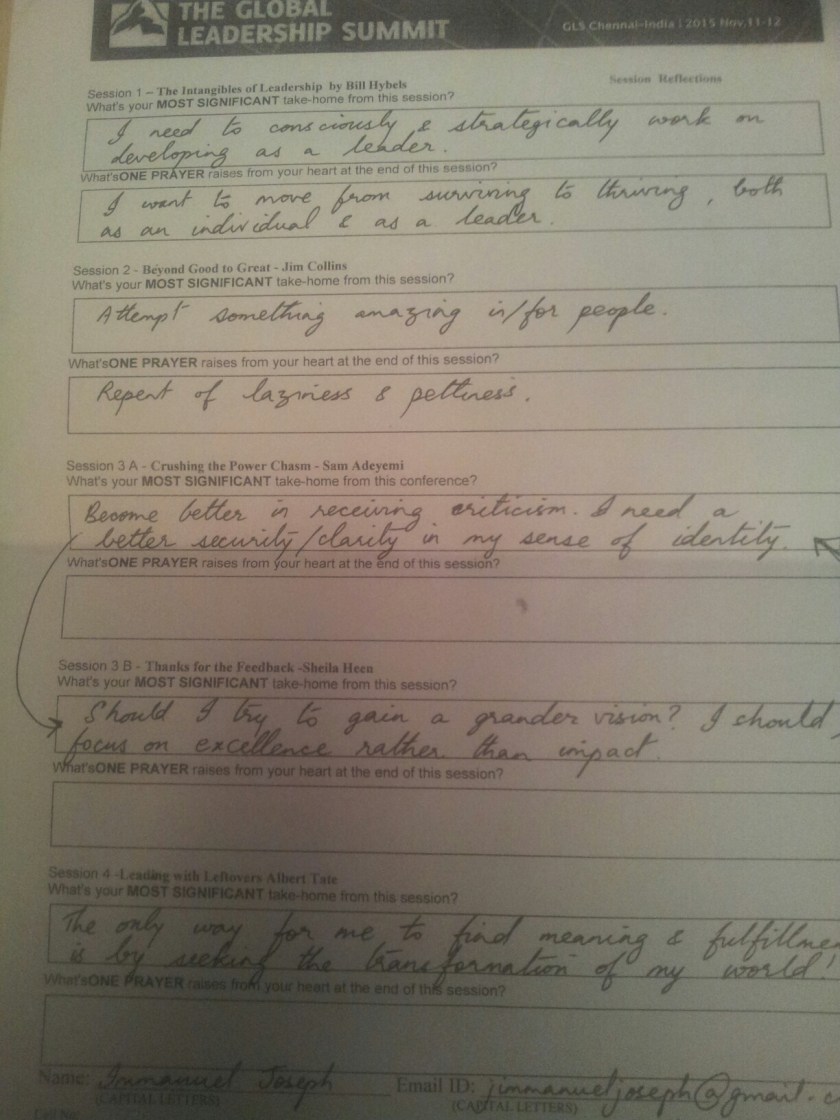 THE GLOBAL
LEADERSHIP SUMMIT
GLS Chennai-India | 2015 Nov,11-12
Session Reflections
Session 1 – The Intangibles of Leadership by Bill Hybels
What's your MOST SIGNIFICANT take-home from this session?
I need to consciously & strategically work on
developing as a leader.
What'sONE PRAYER raises from your heart at the end of this session?
I want to move from surviving to thriving, both
as an individual & as a leader.
Session 2 - Beyond Good to Great - Jim Collins
What's your MOST SIGNIFICANT take-home from this session?
Attempt something amazing in/for people.
What'sONE PRAYER raises from your heart at the end of this session?
Repent of laziness & pettiness.
Session 3 A - Crushing the Power Chasm - Sam Adeyemi
What's your MOST SIGNIFICANT take-home from this conference?
Become better in receiving criticism. I need a
better security/clarity in my sense of identity.
What'sONE PRAYER raises from your heart at the end of this session?
Session 3 B - Thanks for the Feedback -Sheila Heen
What's your MOST SIGNIFICANT take-home from this session?
Should I try to gain a grander vision? I should
focus on excellence rather than impact.
What'sONE PRAYER raises from your heart at the end of this session?
Session 4 -Leading with Leftovers Albert Tate
What's your MOST SIGNIFICANT take-home from this session?
The only way for me to find meaning & fulfillme
is by seeking the transformation of my world!
What'sONE PRAYER raises from your heart at the end of this session?
Name: Immanuel Joseph Email ID: jimmanueljoseph@gmail.c
(CAPITAL LETTERS) (CAPITAL LETTERS)